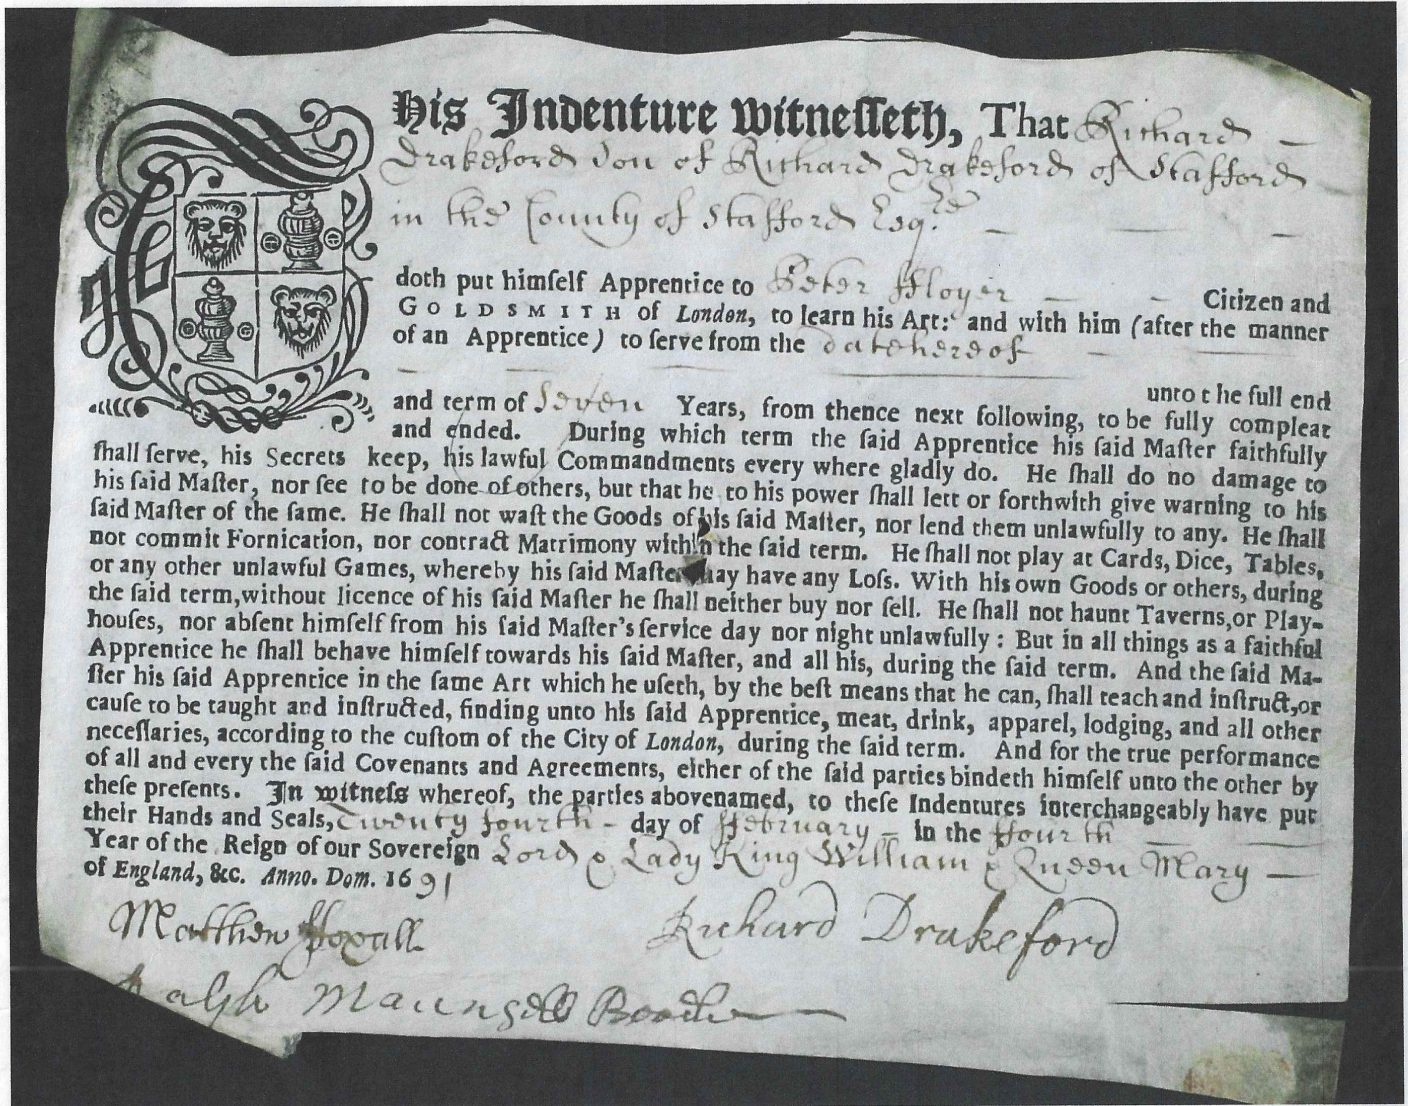 This Indenture Witnesseth, That Richard —
Drakeford son of Richard Drakeford of Stafford
in the County of Stafford Esq.re — — —
doth put himself Apprentice to Peter Floyer — — Citizen and
GOLDSMITH of London, to learn his Art: and with him (after the manner
of an Apprentice) to serve from the date hereof —
unto the full end
and term of Seven Years, from thence next following, to be fully compleat
and ended. During which term the said Apprentice his said Master faithfully
shall serve, his Secrets keep, his lawful Commandments every where gladly do. He shall do no damage to
his said Master, nor see to be done of others, but that he to his power shall lett or forthwith give warning to his
said Master of the same. He shall not wast the Goods of his said Master, nor lend them unlawfully to any. He shall
not commit Fornication, nor contract Matrimony within the said term. He shall not play at Cards, Dice, Tables,
or any other unlawful Games, whereby his said Master may have any Loss. With his own Goods or others, during
the said term, without licence of his said Master he shall neither buy nor sell. He shall not haunt Taverns, or Play-
houses, nor absent himself from his said Master's service day nor night unlawfully: But in all things as a faithful
Apprentice he shall behave himself towards his said Master, and all his, during the said term. And the said Ma-
ster his said Apprentice in the same Art which he useth, by the best means that he can, shall teach and instruct, or
cause to be taught and instructed, finding unto his said Apprentice, meat, drink, apparel, lodging, and all other
necessaries, according to the custom of the City of London, during the said term. And for the true performance
of all and every the said Covenants and Agreements, either of the said parties bindeth himself unto the other by
these presents. In witness whereof, the parties abovenamed, to these Indentures interchangeably have put
their Hands and Seals, Twenty fourth – day of February – in the Fourth
Year of the Reign of our Sovereign Lord & Lady King William & Queen Mary —
of England, &c. Anno. Dom. 1691
Matthew Foxall Richard Drakeford
Ralph Maunsell